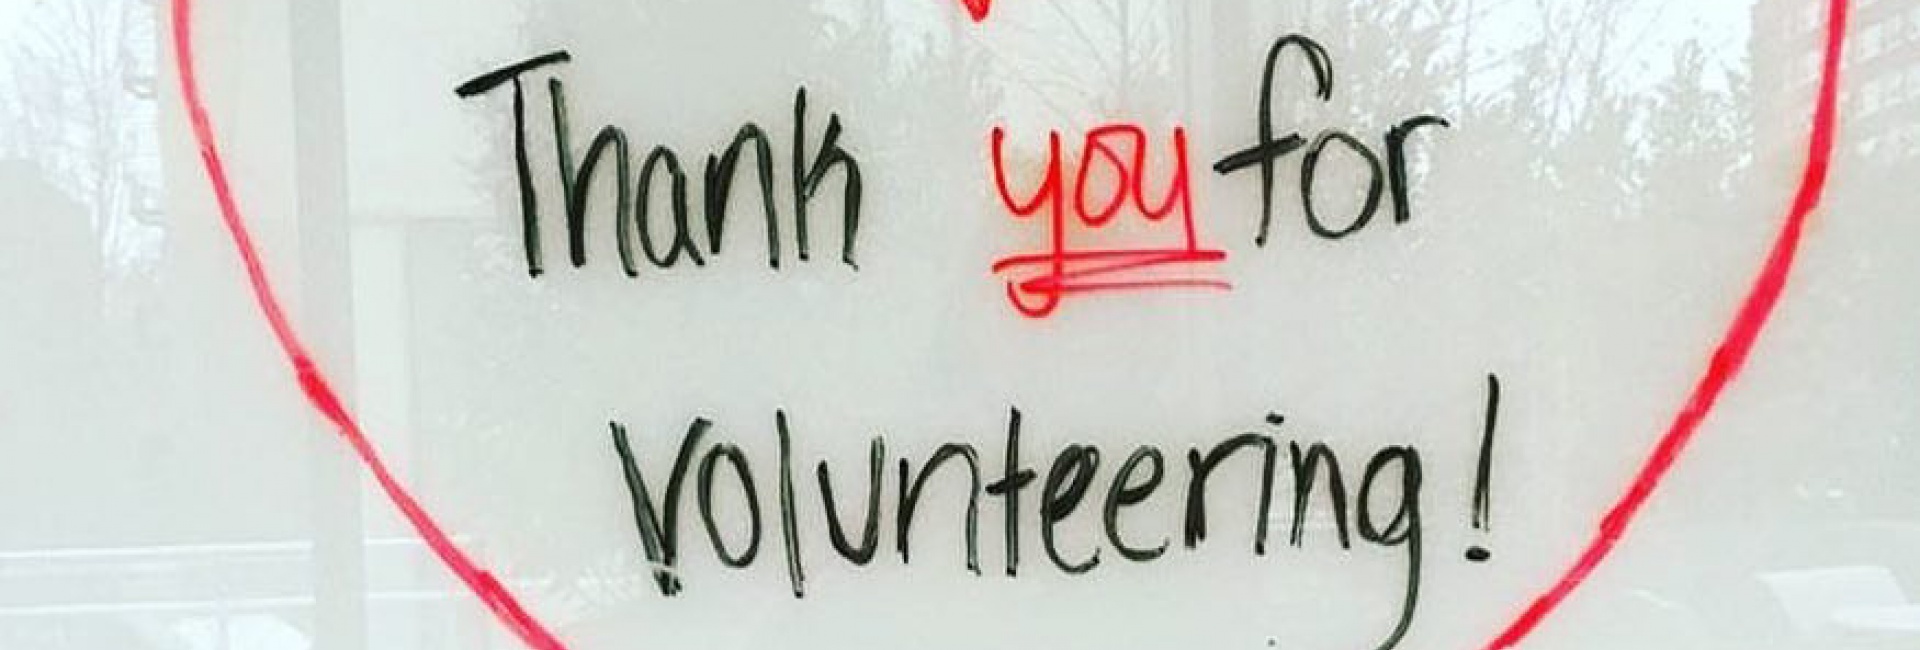 Thank you for
volunteering!